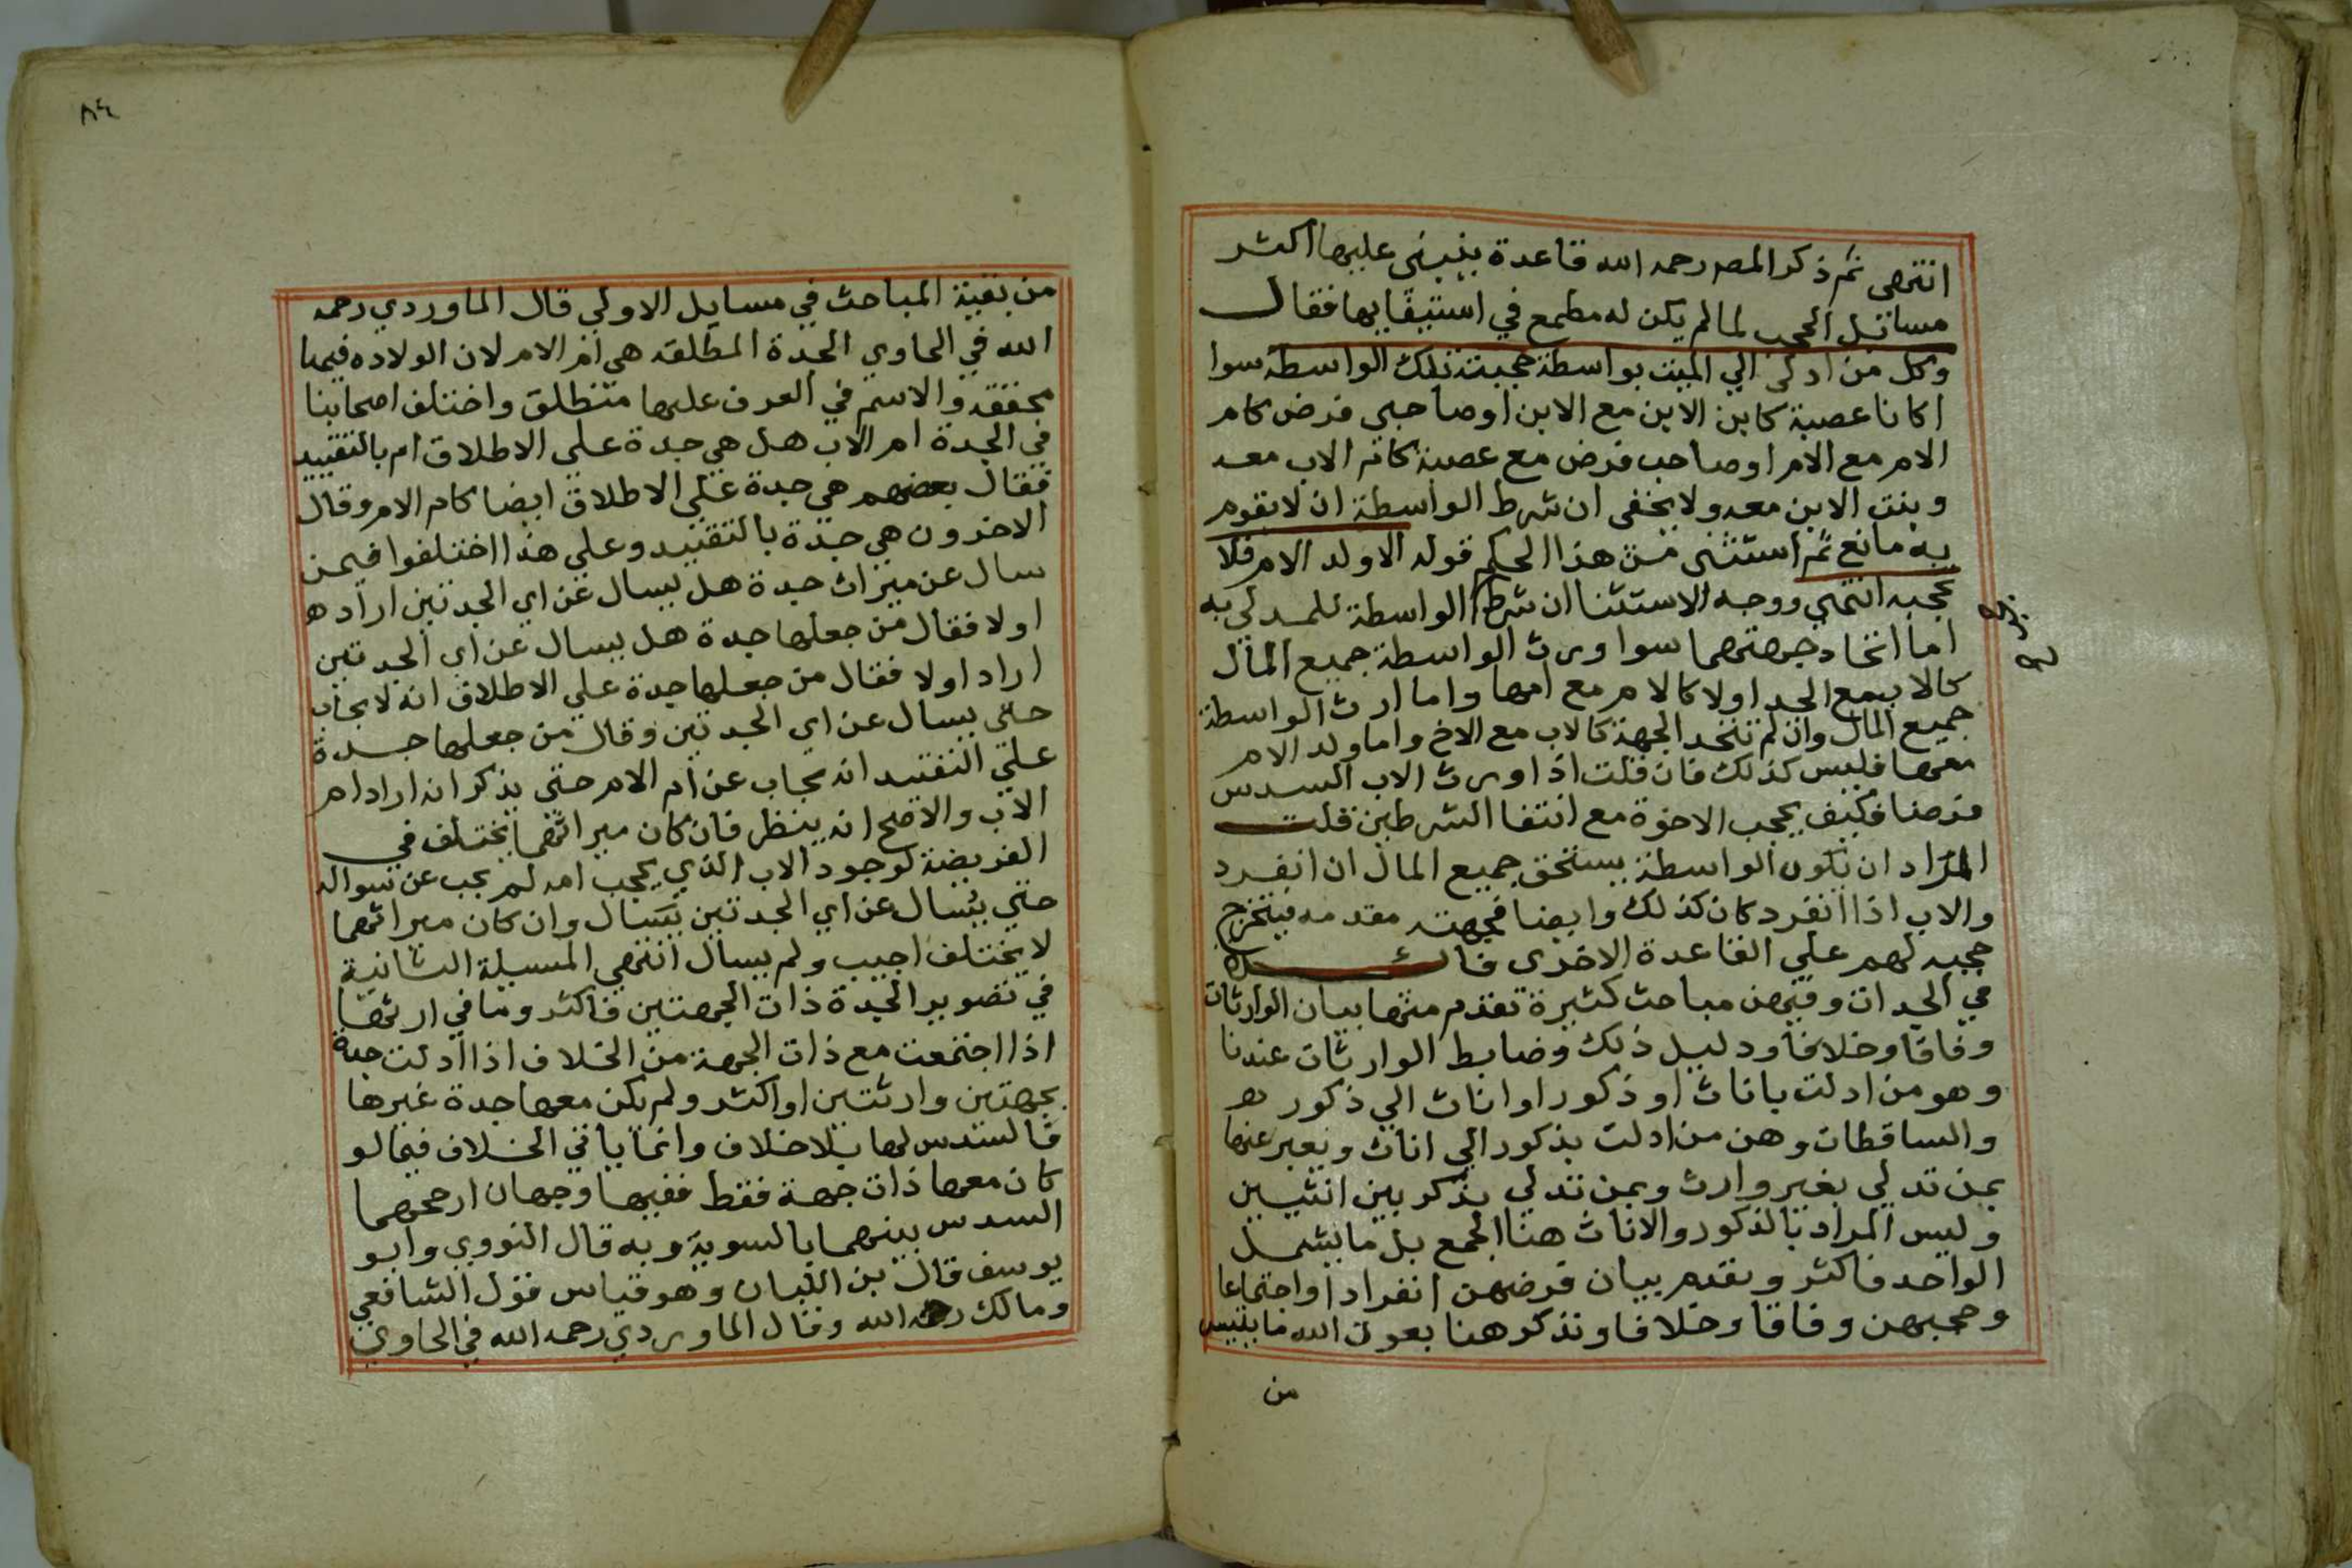 انتهى ثم ذكر المصـ رحمه الله قاعدة ينبني عليها اكثر
مسائل الحجب لما لم يكن له مطمع في استيفايها فقال
وكل من ادلى الي الميت بواسطة حجبته تلك الواسطة سوا
اكانا عصبة كابن الابن مع الابن او صاحبي فرض كام
الام مع الام او صاحب فرض مع عصبة كام الاب معه
وبنت الابن معه ولا يخفى ان شرط الواسطة ان لا يقوم
به مانع ثم استثنى من هذا الحكم قوله الا ولد الام فلا
تحجبه انتهي ووجه الاستثنا ان شرط الواسطة للمدلي به
اما اتحاد جهتهما سوا ورث الواسطة جميع المال
كالاب مع الجد اولا كالام مع امها واما ارث الواسطة
جميع المال وان لم تتحد الجهة كالاب مع الاخ واما ولد الام
معها فليس كذلك فان قلت اذا ورث الاب السدس
فرضا فكيف يحجب الاخوة مع انتفا الشرطين قلت
المراد ان تكون الواسطة يستحق جميع المال ان انفرد
والاب اذا انفرد كان كذلك وايضا فجهته مقدمه فيتخرج
حجبه لهم علي القاعدة الاخرى فائدة
في الجدات وفيهن مباحث كثيرة تقدم منها بيان الوارثات
وفاقا وخلافا ودليل ذلك وضابط الوارثات عندنا
وهو من ادلت باناث او ذكور او اناث الي ذكور
والساقطات وهن من ادلت بذكور الي اناث ويعبر عنها
بمن تدلي بغير وارث وبمن تدلي بذكر بين انثيين
وليس المراد بالذكور والاناث هنا الجمع بل ما يشمل
الواحد فاكثر وتقدم بيان فرضهن انفرادا واجتماعا
وحجبهن وفاقا وخلافا ونذكر هنا بعون الله ما يليس
من
٨٤
من بقية المباحث في مسايل الاولى قال الماوردي رحمه
الله في الحاوي الجدة المطلقه هي ام الام لان الولاده فيها
محققه والاسم في العرف عليها متطلق واختلف اصحابنا
في الجدة ام الاب هل هي جدة علي الاطلاق ام بالتقييد
فقال بعضهم هي جدة علي الاطلاق ايضا كام الام وقال
الاخرون هي جدة بالتقييد وعلي هذا اختلفوا فيمن
سال عن ميراث جدة هل يسال عن اي الجدتين اراد
اولا فقال من جعلها جدة هل يسال عن اي الجدتين
اراد اولا فقال من جعلها جدة علي الاطلاق انه لا يجاب
حتى يسال عن اي الجدتين وقال من جعلها جدة
علي التقييد انه يجاب عن ام الام حتى يذكر انه اراد ام
الاب والاصح انه ينظر فان كان ميراثهما يختلف في
الفريضة لوجود الاب الذي يحجب امه لم يجب عن سواله
حتي يسال عن اي الجدتين يسال وان كان ميراثهما
لا يختلف اجيب ولم يسال انتهي المسيلة الثانية
في تصوير الجدة ذات الجهتين فاكثر وما في ارثها
اذا اجتمعت مع ذات الجهة من الخلاف اذا ادلت جدة
بجهتين وارثتين او اكثر ولم يكن معها جدة غيرها
فالسدس لها بلا خلاف وانما ياتي الخلاف فيما لو
كان معها ذات جهة فقط ففيها وجهان ارجحهما
السدس بينهما بالسوية وبه قال النووي وابو
يوسف قال بن اللبان وهو قياس قول الشافعي
ومالك رحمه الله وقال الماوردي رحمه الله في الحاوي